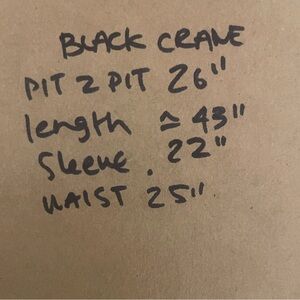 BLACK CRANE
PIT 2 PIT 26"
length ≃ 43"
Sleeve . 22"
WAIST 25"